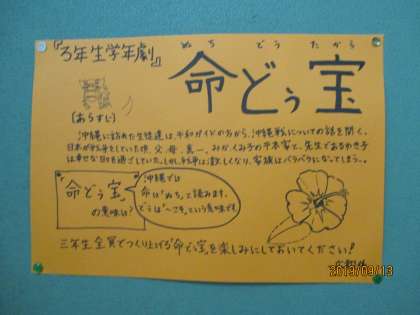 『3年生学年劇』
ぬち どう たから
命どぅ宝
(あらすじ)
沖縄に訪れた生徒達は、平和ガイドの方から、沖縄戦についての話を聞く。
日本が戦争をしていた頃、父、母、真一、みか、くみ子の平本家と、先生とおさやき子
は幸せな日々を過ごしていた。しかし戦争は激しくなり、家族はバラバラになってしまう…。
"命どぅ宝"
の意味は?
沖縄では
命は"ぬち"と読みます。
どぅは"〜こそ"という意味です。
三年生全員でつくり上げる"命どぅ宝"を楽しみにしておいてください!
2013/09/13